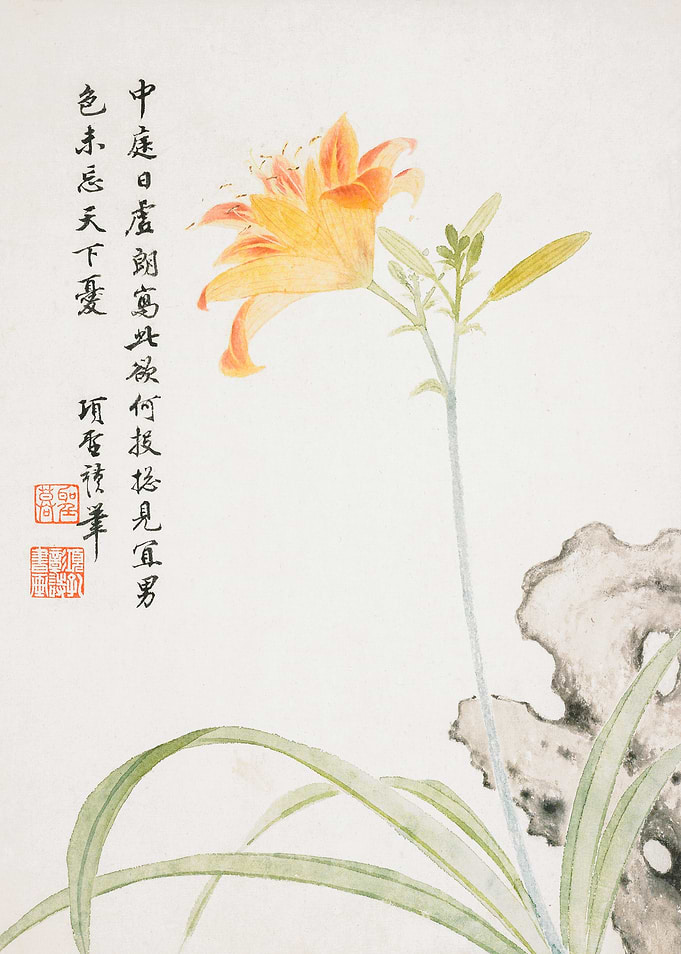 中庭日虛朗寫此欲何投搃見宜男
色未忘天下憂
項聖謨筆